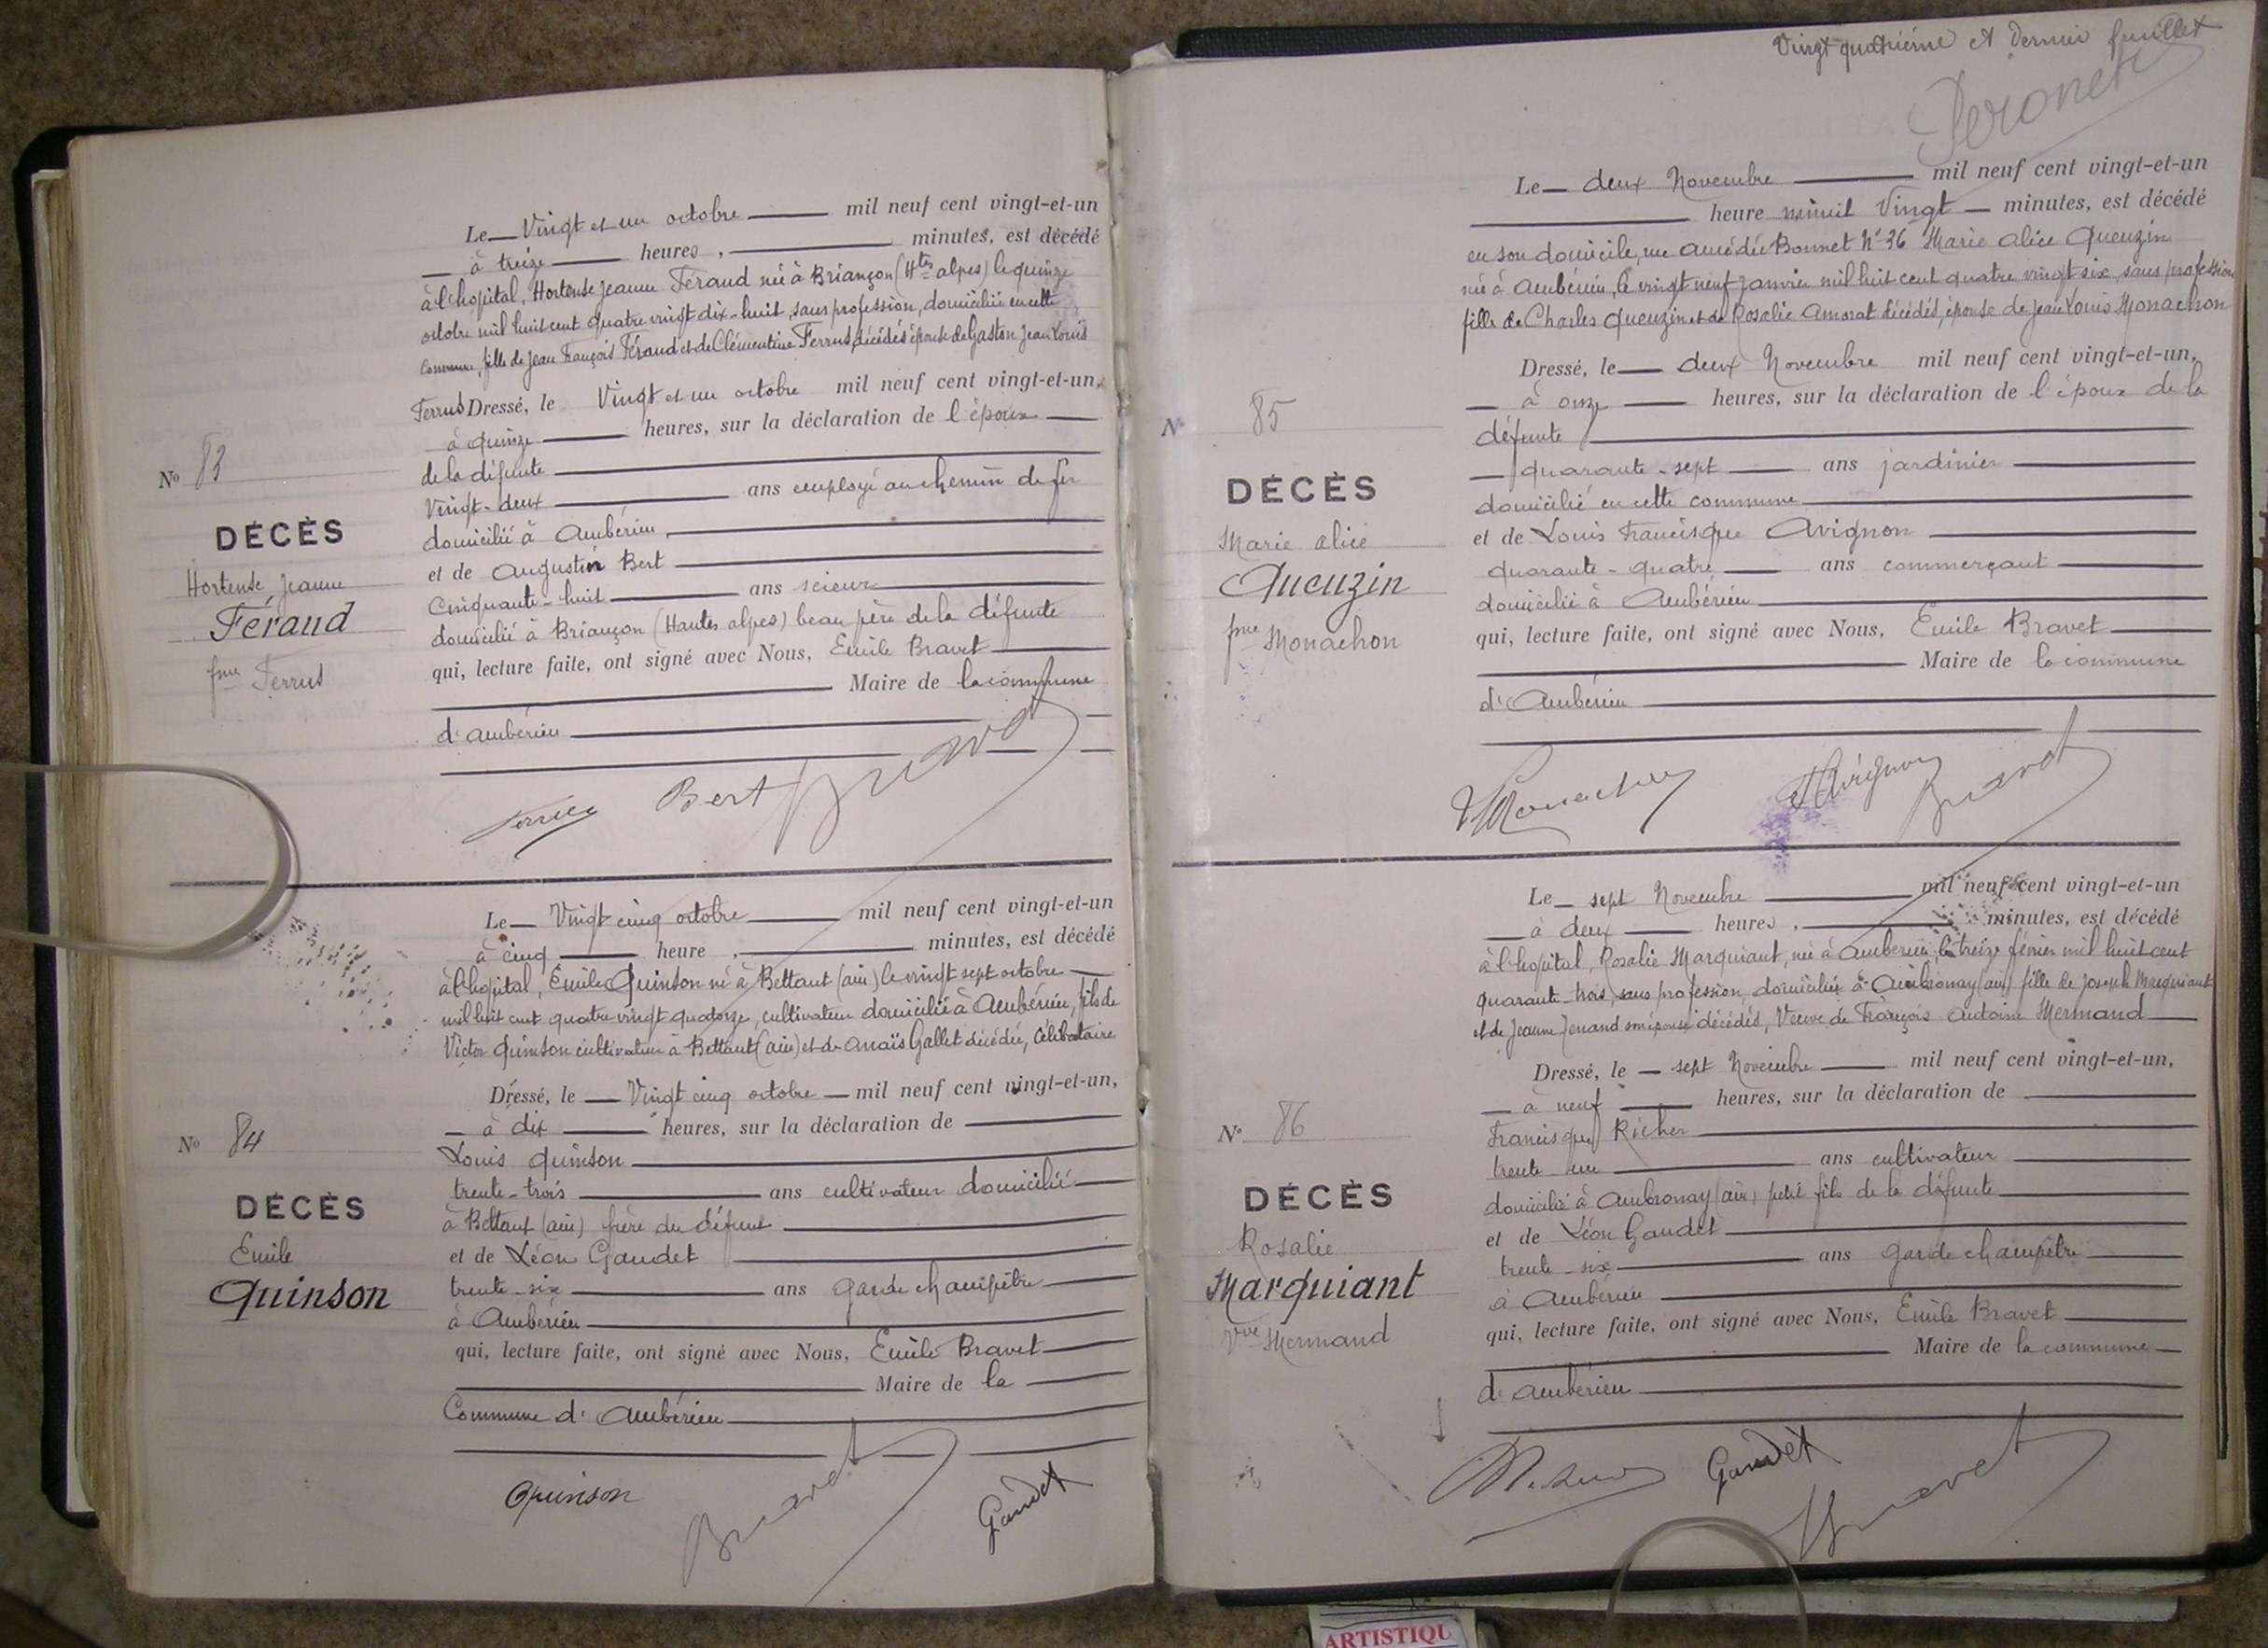 Le Vingt et un octobre mil neuf cent vingt-et-un
à treize heures, minutes, est décédé
à l'hopital, Hortense Jeanne Féraud née à Briançon (Htes alpes) le quinze
octobre mil huit cent quatre vingt dix-huit, sans profession, domiciliée en cette
commune, fille de Jean François Féraud et de Clémentine Ferrus, décédés épouse de Gaston Jean Louis
Ferrus Dressé, le Vingt et un octobre mil neuf cent vingt-et-un,
à quinze heures, sur la déclaration de l'époux
de la défunte
Vingt-deux ans employé au chemin de fer
domicilié à Ambérieu,
et de Augustin Bert
Cinquante-huit ans scieur
domicilié à Briançon (Hautes alpes) beau père de la défunte
qui, lecture faite, ont signé avec Nous, Emile Bravet
Maire de la commune
d'ambérieu
No 83
DÉCÈS
Hortense Jeanne
Féraud
fme Ferrus
Bert Bravet
Le Vingt cinq octobre mil neuf cent vingt-et-un
à cinq heure, minutes, est décédé
à l'hopital, Emile Quinson né à Bettant (ain) le vingt sept octobre
mil huit cent quatre vingt quatorze, cultivateur domicilié à Ambérieu, fils de
Victor Quinson cultivateur à Bettant (ain) et de Anaïs Gallet décédée, Célibataire
Dressé, le Vingt cinq octobre mil neuf cent vingt-et-un,
à dix heures, sur la déclaration de
Louis Quinson
trente-trois ans cultivateur domicilié
à Bettant (ain) frère du défunt
et de Léon Gaudet
trente-six ans garde champêtre
à Ambérieu
qui, lecture faite, ont signé avec Nous, Emile Bravet
Maire de la
Commune d'Ambérieu
No 84
DÉCÈS
Emile
Quinson
Quinson Bravet Gaudet
Vingt quatrième et dernier feuillet
Peronet
Le deux Novembre mil neuf cent vingt-et-un
heure minuit Vingt minutes, est décédé
en son domicile, rue amédée Bonnet No 36 Marie Alice Queuzin
née à Ambérieu, le vingt neuf janvier mil huit cent quatre vingt six, sans profession
fille de Charles Queuzin et de Rosalie Amorat décédés, épouse de Jean Louis Monachon
Dressé, le deux Novembre mil neuf cent vingt-et-un,
à onze heures, sur la déclaration de l'époux de la
défunte
quarante-sept ans jardinier
domicilié en cette commune
et de Louis Francisque Avignon
quarante-quatre ans commerçant
domicilié à Ambérieu
qui, lecture faite, ont signé avec Nous, Emile Bravet
Maire de la commune
d'Ambérieu
No 85
DÉCÈS
Marie alice
Queuzin
fme Monachon
Monachon Avignon Bravet
Le sept Novembre mil neuf cent vingt-et-un
à deux heures, minutes, est décédé
à l'hopital, Rosalie Marquiant, née à Ambérieu, le treize février mil huit cent
quarante-trois, sans profession, domiciliée à Ambronay (ain) fille de Joseph Marquiant
et de Jeanne Jenand son épouse décédés, Veuve de François Antoine Mermand
Dressé, le sept Novembre mil neuf cent vingt-et-un,
à neuf heures, sur la déclaration de
Francisque Richer
trente-un ans cultivateur
domicilié à Ambronay (ain) petit fils de la défunte
et de Léon Gaudet
trente-six ans garde champêtre
à Ambérieu
qui, lecture faite, ont signé avec Nous, Emile Bravet
Maire de la commune
d'ambérieu
No 86
DÉCÈS
Rosalie
Marquiant
Vve Mermand
Gaudet Bravet
ARTISTIQU